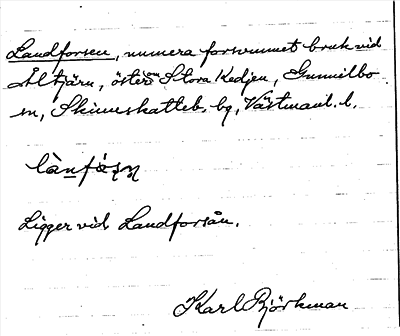 Landforsen, numera försvunnet bruk vid
Åltjärn, öster om Stora Kedjen, Gunnilbo
sn, Skinnskatteb. bg, Västmanl. l.
Ligger vid Landforsån.
Karl Björkman